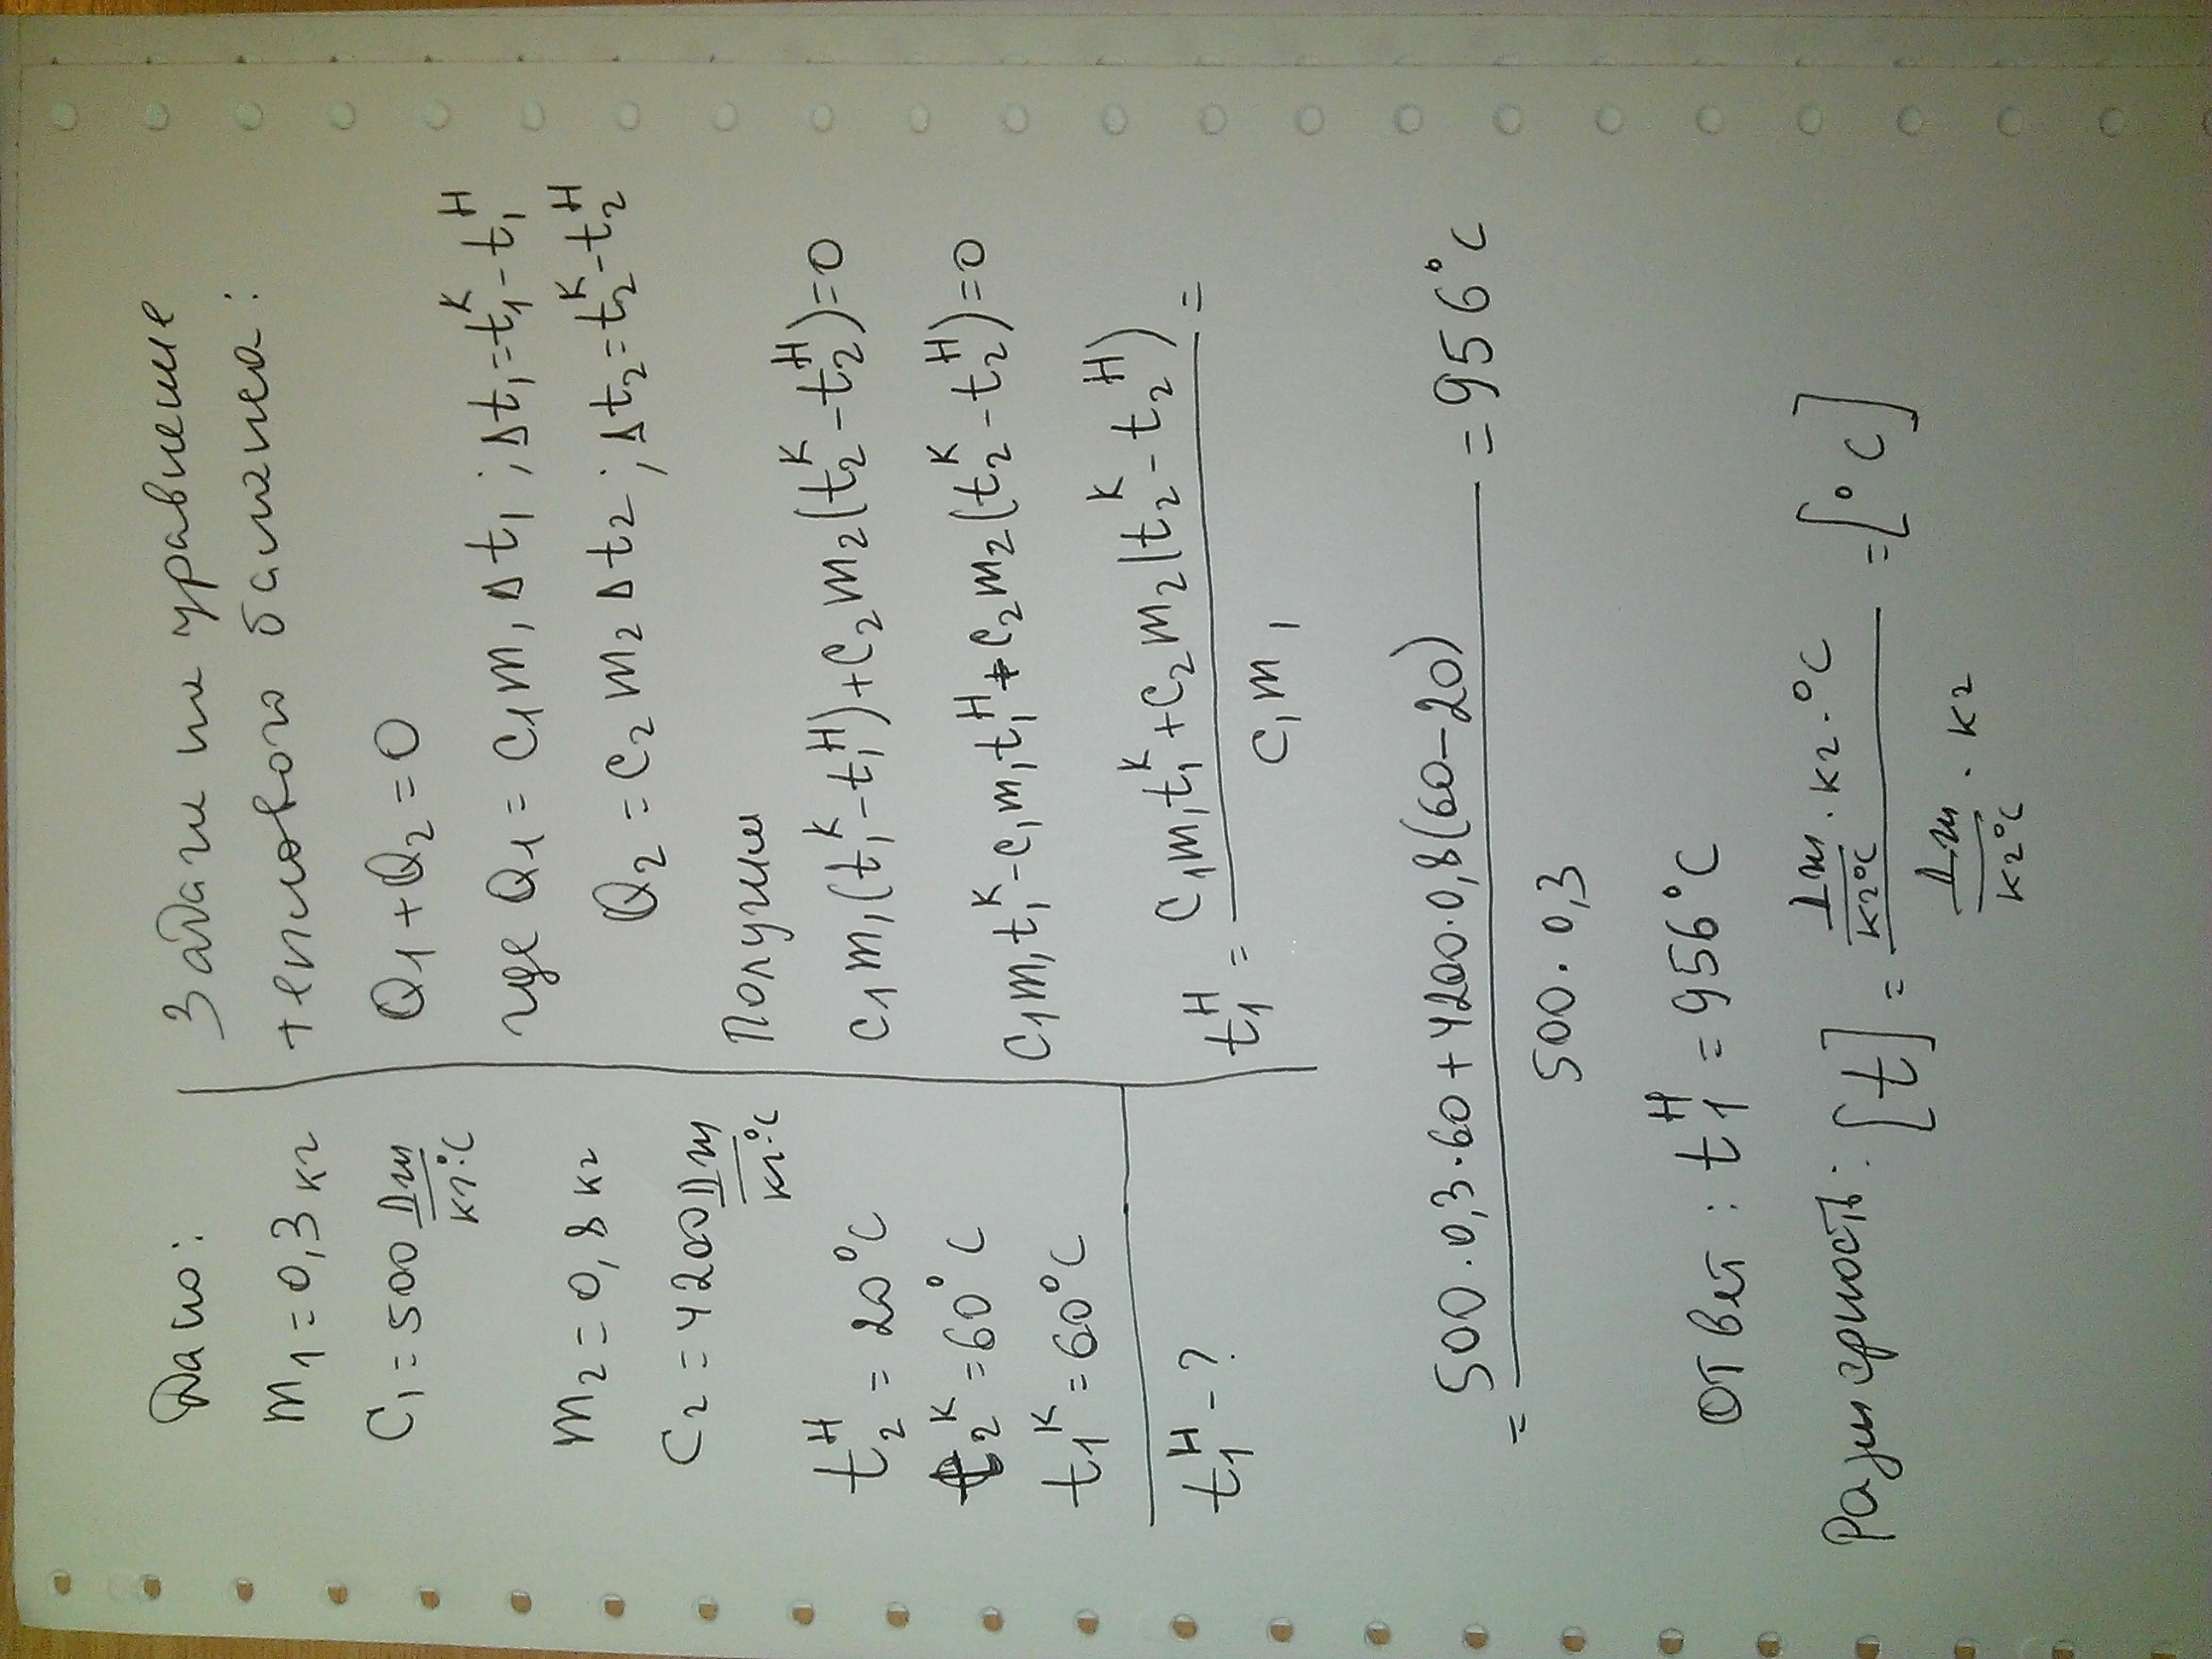 Дано:
m₁ = 0,3 кг
C₁ = 500 Дж/кг·°C
m₂ = 0,8 кг
C₂ = 4200 Дж/кг·°C
t₂ᴴ = 20°C
t₂ᴷ = 60°C
t₁ᴷ = 60°C
t₁ᴴ - ?
Задачи на уравнение
теплового баланса:
Q₁ + Q₂ = 0
где Q₁ = C₁m₁Δt₁ ; Δt₁ = t₁ᴷ - t₁ᴴ
Q₂ = C₂m₂Δt₂ ; Δt₂ = t₂ᴷ - t₂ᴴ
Получим
C₁m₁(t₁ᴷ - t₁ᴴ) + C₂m₂(t₂ᴷ - t₂ᴴ) = 0
C₁m₁t₁ᴷ - C₁m₁t₁ᴴ + C₂m₂(t₂ᴷ - t₂ᴴ) = 0
t₁ᴴ = (C₁m₁t₁ᴷ + C₂m₂(t₂ᴷ - t₂ᴴ))/C₁m₁ =
= (500·0,3·60 + 4200·0,8(60-20))/500·0,3 = 956°C
Ответ: t₁ᴴ = 956°C
Размерность: [t] = (Дж/кг°C · кг·°C)/(Дж/кг°C · кг) = [°C]